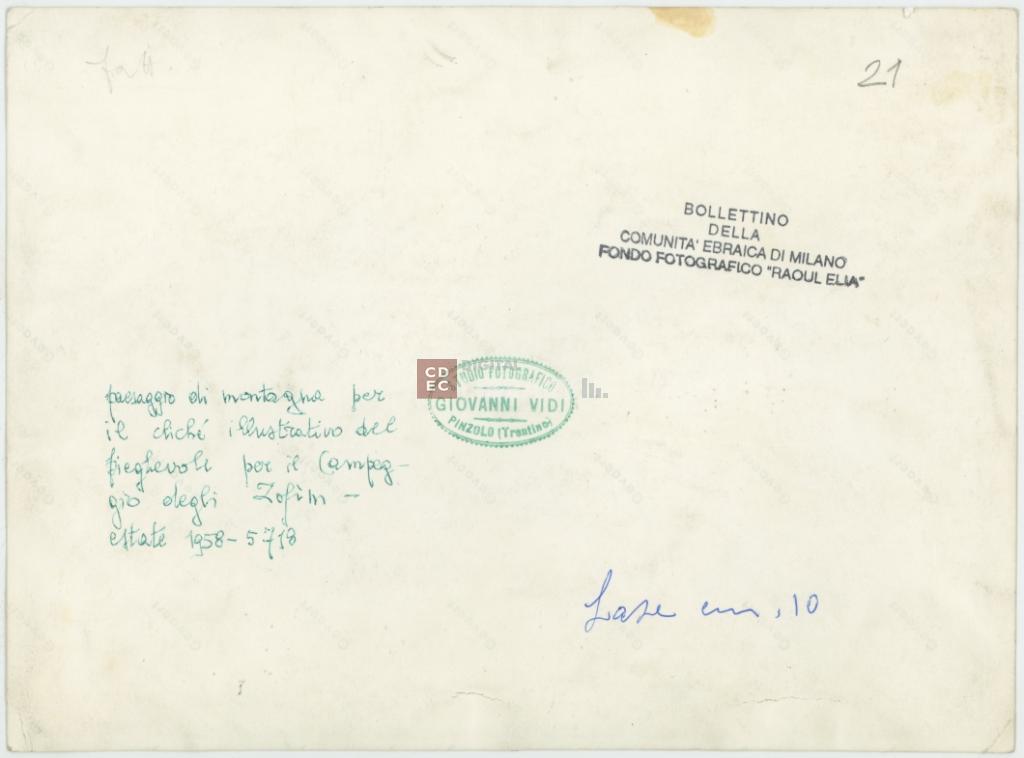 fatt.
21
BOLLETTINO
DELLA
COMUNITA' EBRAICA DI MILANO
FONDO FOTOGRAFICO "RAOUL ELIA"
CDEC DIGITAL
STUDIO FOTOGRAFICO
GIOVANNI VIDI
PINZOLO (Trentino)
paesaggio di montagna per
il cliché illustrativo del
pieghevole per il Campeg-
gio degli Zofim -
estate 1958 - 5718
base cm. 10